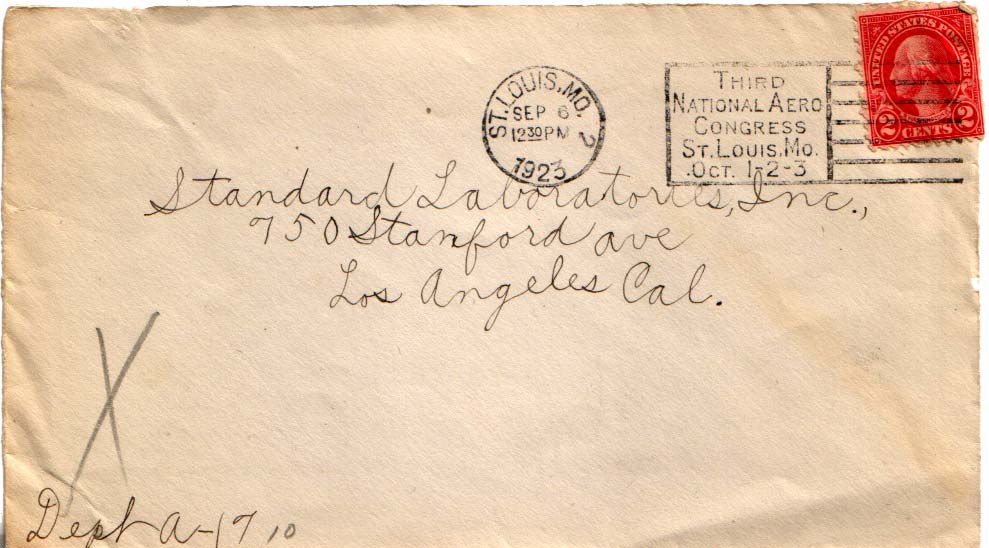 UNITED STATES POSTAGE
2 CENTS 2
ST. LOUIS, MO. 2
SEP 6
12 30 PM
1923
THIRD
NATIONAL AERO
CONGRESS
ST. LOUIS, MO.
OCT. 1-2-3
Standard Laboratories, Inc.,
750 Stanford ave
Los Angeles Cal.
X
Dept A-17 10